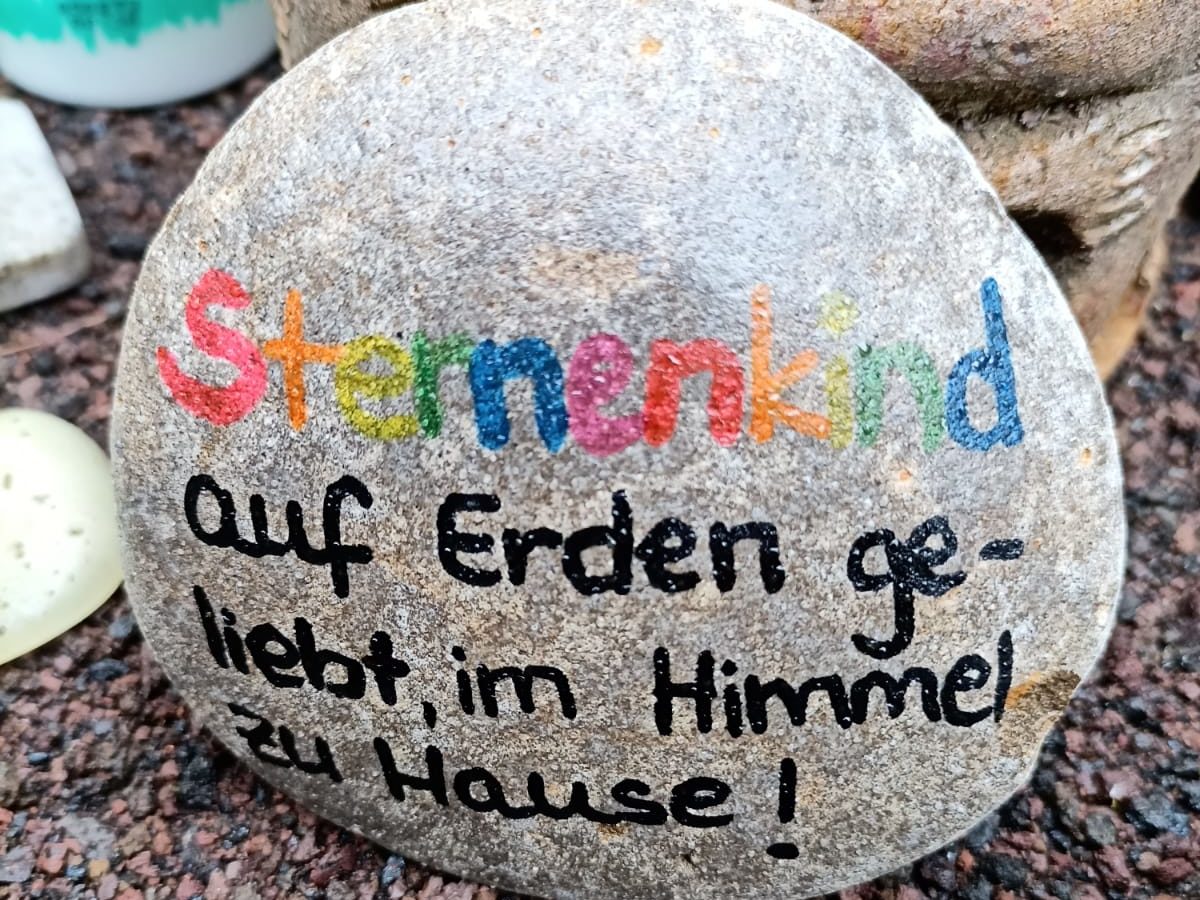 Sternenkind
auf Erden ge-
liebt, im Himmel
zu Hause!